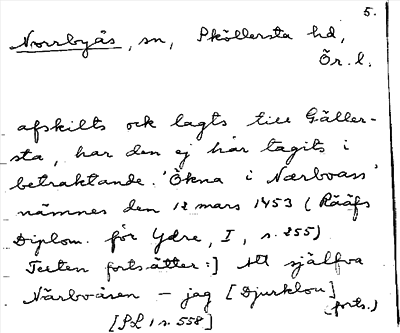 5.
Norrbyås, sn, Sköllersta hd,
Ör. l.
afskilts ock lagts till Gäller-
sta, har den ej här tagits i
betraktande. 'Ökna i Nærboass'
nämnes den 12 mars 1453 (Rääfs
Diplom. för Ydre, I, s. 255)
Texten fortsätter:] Att själfva
Närboåsen – jag [Djurklou]
(forts.)
[SL 1 s. 558]